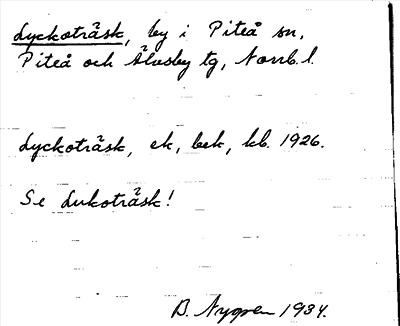 Lyckoträsk, by i Piteå sn,
Piteå och Älvsby tg, Norrb. l.
Lyckoträsk, ek, bek, kb. 1926.
Se Lukoträsk!
B. Nygren 1934.